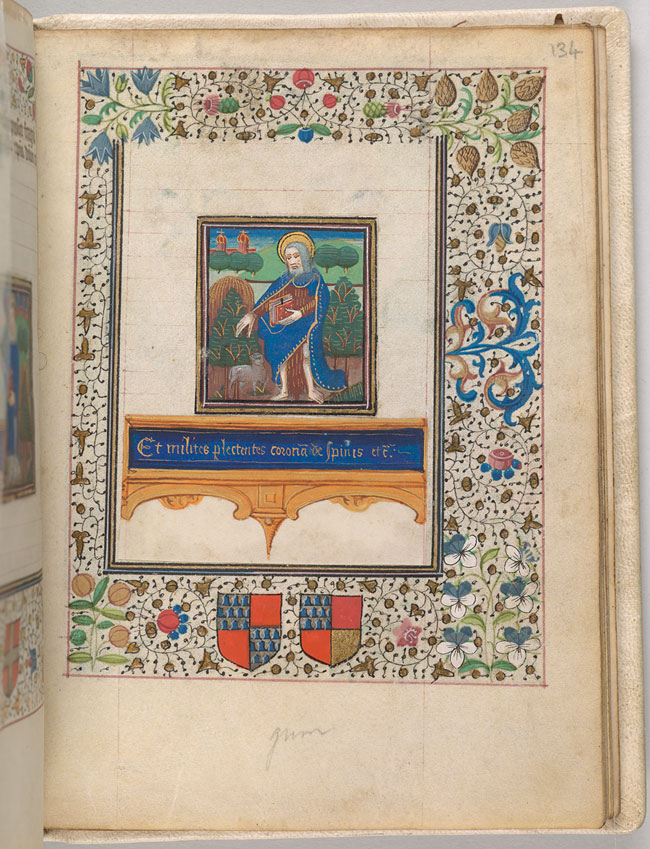 134
Et milites plectentes coronā de spinis et c̄.